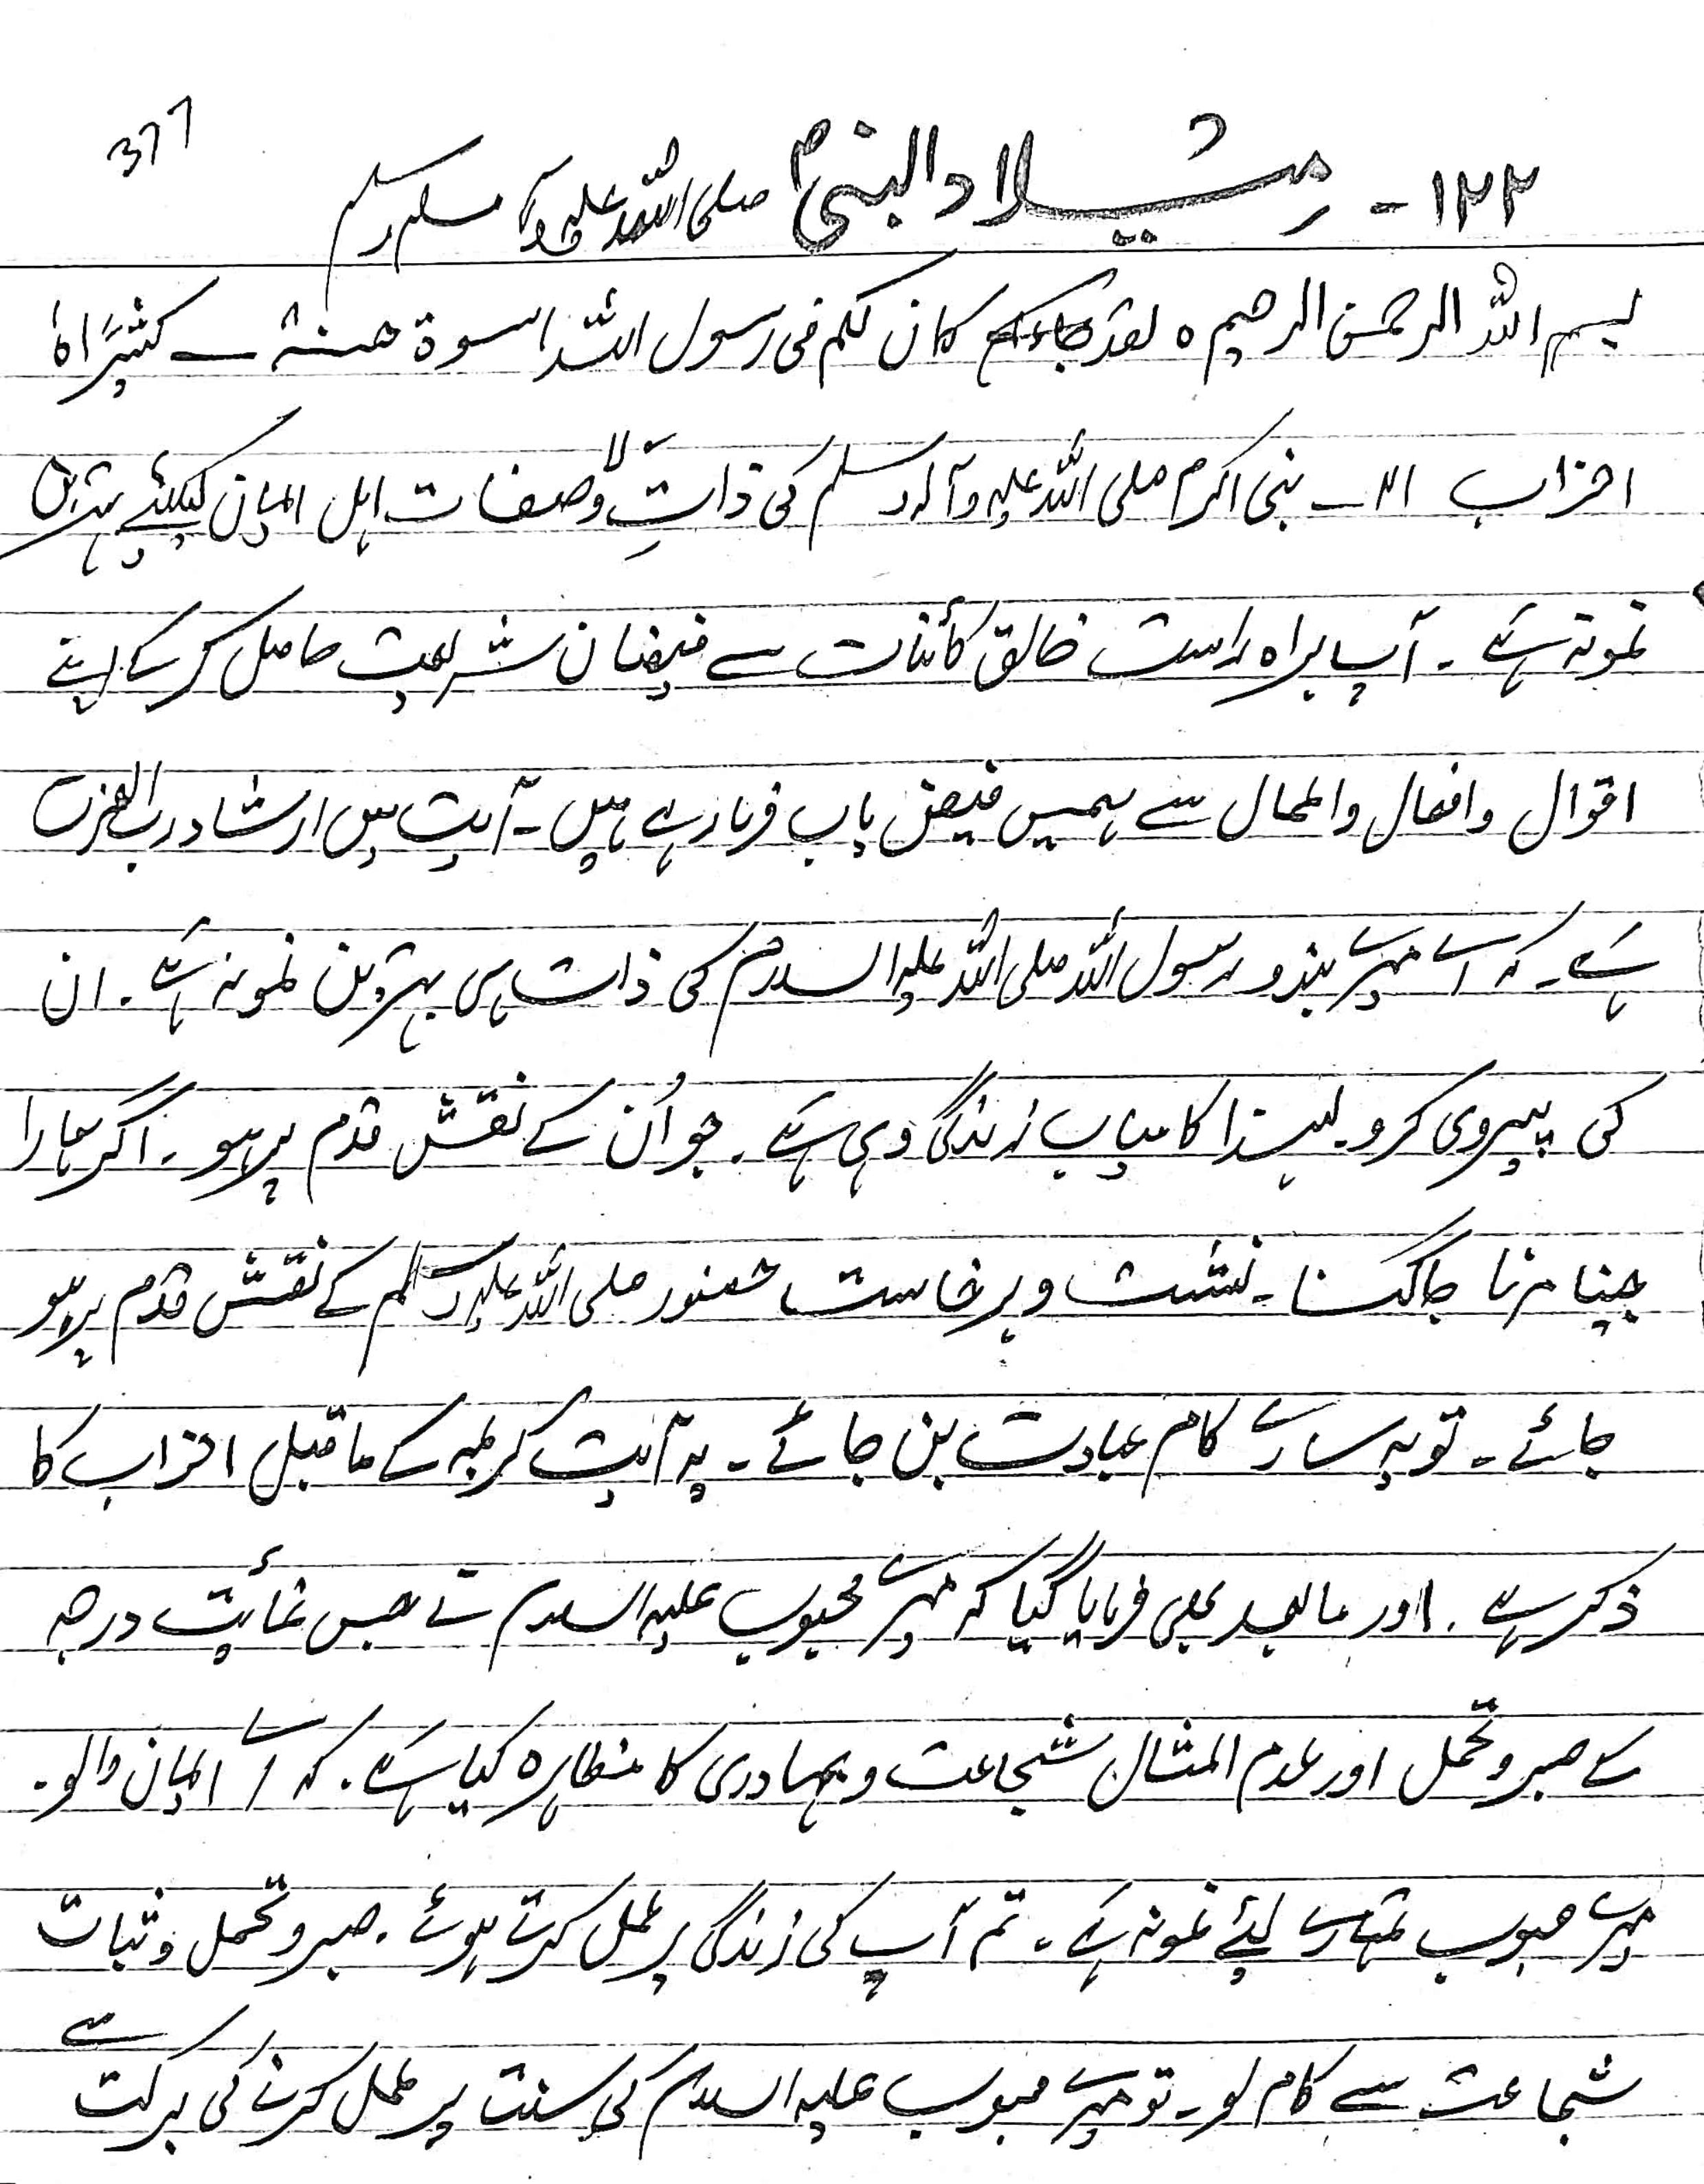 377
۱۲۲ - میلاد النبی صلی اللہ علیہ وآلہ وسلم
بسم اللہ الرحمن الرحیم ہ لقد کان لکم فی رسول اللہ اسوۃ حسنۃ ــ کثیرًا ۵
احزاب ۲۱ ــ نبی اکرم صلی اللہ علیہ وآلہ وسلم کی ذاتِ والا صفات اہل ایمان کیلئے بہترین
نمونہ ہے ۔ آپ براہ راست خالق کائنات سے فیضان شریعت حاصل کر کے اپنے
اقوال و افعال و اعمال سے ہمیں فیض یاب فرما رہے ہیں ۔ آیت میں ارشاد رب العزت
ہے ۔ کہ اے میرے بندو رسول اللہ صلی اللہ علیہ السلام کی ذات ہی بہترین نمونہ ہے ۔ ان
کی پیروی کرو ۔ لہذا کامیاب زندگی وہی ہے ۔ جو اُن کے نقش قدم پر ہو ۔ اگر ہمارا
جینا مرنا جاگنا ۔ نشست و برخاست حضور صلی اللہ علیہ وسلم کے نقش قدم پر ہو
جائے ۔ تو یہ سارے کام عبادت بن جائے ۔ یہ آیت کریمہ کے ماقبل احزاب کا
ذکر ہے . اور مابعد بھی فرمایا گیا کہ میرے محبوب علیہ السلام نے جس غائیت درجہ
کے صبر و تحمل اور عدم المثال شجاعت و بہادری کا مظاہرہ کیا ہے . کہ اے ایمان والو .
میرے محبوب تمہارے لئے نمونہ ہے ۔ تم آپ کی زندگی پر عمل کرتے ہوئے . صبر و تحمل و ثبات
شجاعت سے کام لو ۔ تو میرے محبوب علیہ السلام کی سنت پر عمل کرنے کی برکت سے